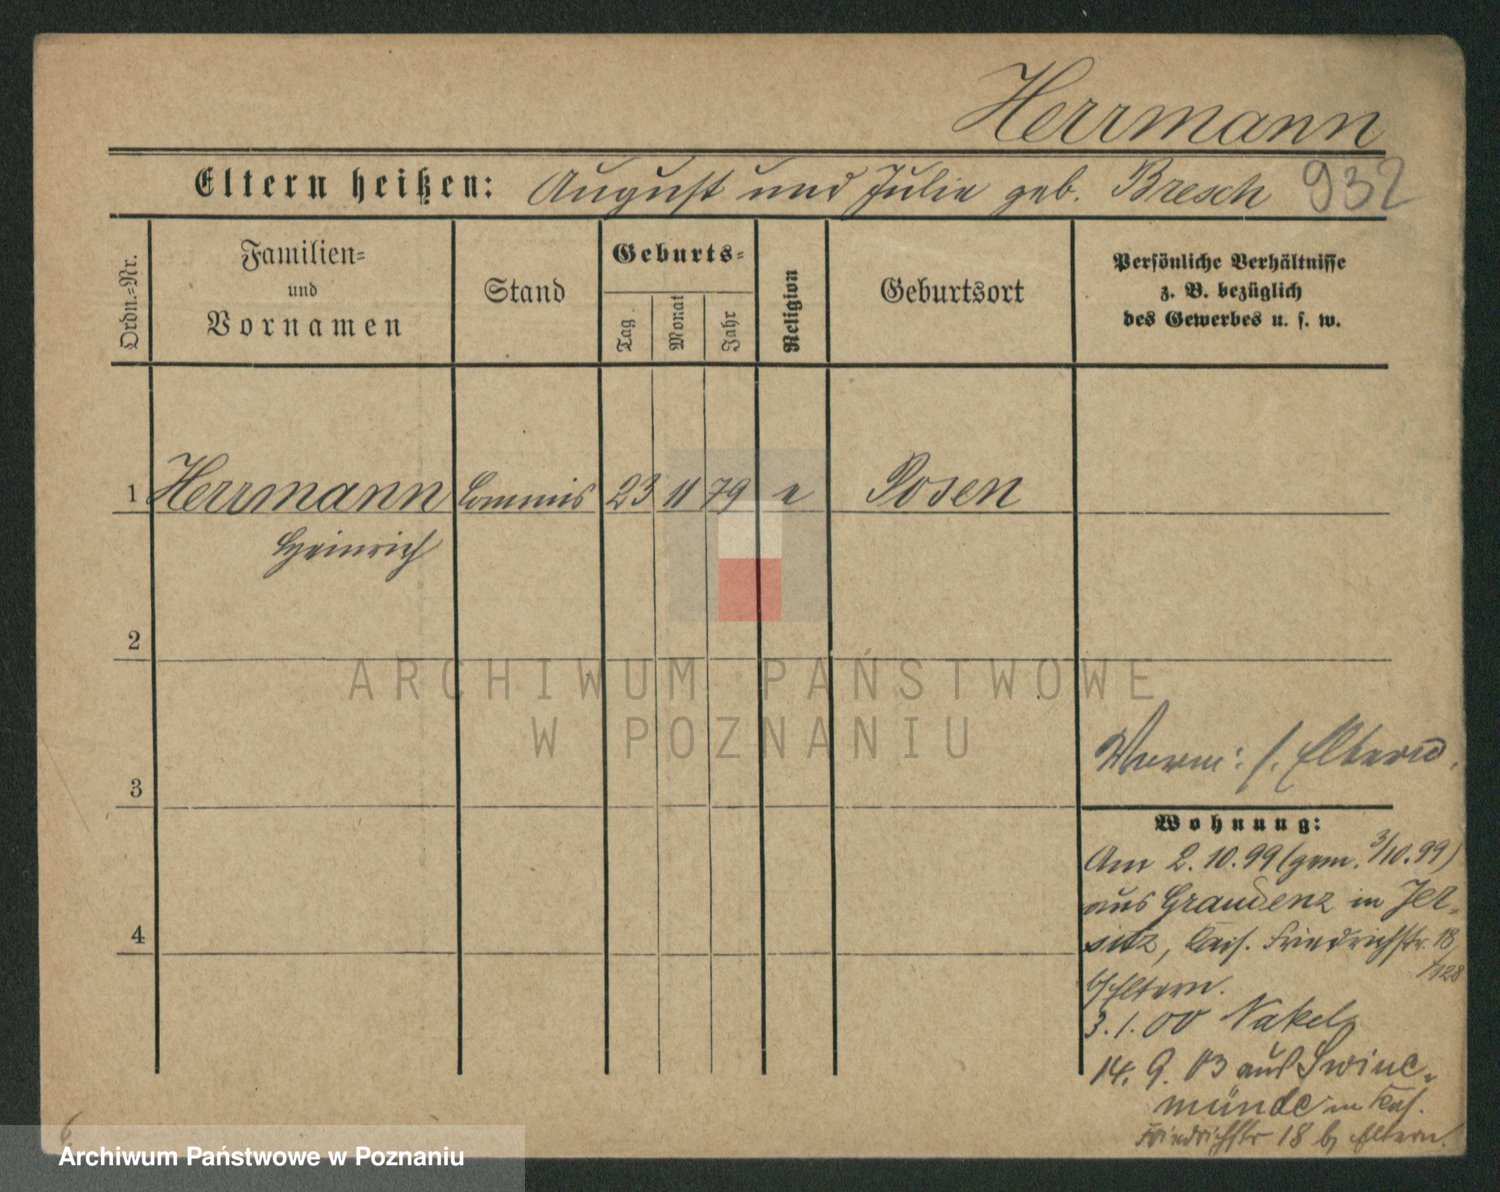 Herrmann
Eltern heißen: August und Julie geb. Bresch 932
Ordn.-Nr.
Familien-
und
Vornamen
Stand
Geburts-
Tag.
Monat
Jahr
Religion
Geburtsort
Persönliche Verhältnisse
z. B. bezüglich
des Gewerbes u. s. w.
1 Herrmann Commis 23 11 79 e Posen
Heinrich
2
ARCHIWUM PAŃSTWOWE
W POZNANIU
3
s. Eltern.
Wohnung:
Am 2.10.99 (gem. 3/10.99)
aus Graudenz in Jer-
sitz, Kais. Friedrichstr. 18
/128
4
b/Eltern.
3.1.00 Nakel
14. 9. 03 aus Swine-
münde in Kais.
Friedrichstr 18 b/ Eltern.
Archiwum Państwowe w Poznaniu